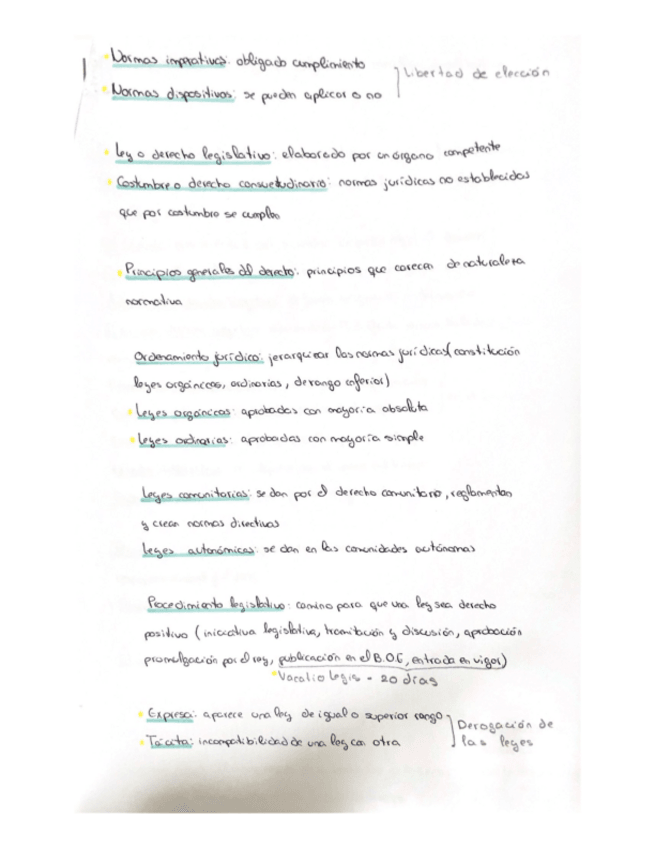 Normas imperativas: obligado cumplimiento
Libertad de elección
Normas dispositivas: se pueden aplicar o no
Ley o derecho legislativo: elaborado por un órgano competente
Costumbre o derecho consuetudinario: normas jurídicas no establecidas
que por costumbre se cumplen
Principios generales del derecho: principios que carecen de naturaleza
normativa
Ordenamiento jurídico: jerarquizar las normas jurídicas (constitución
leyes orgánicas, ordinarias, de rango inferior)
Leyes orgánicas: aprobadas con mayoría absoluta
Leyes ordinarias: aprobadas con mayoría simple
Leyes comunitarias: se dan por el derecho comunitario, reglamentan
y crean normas directivas
Leyes autonómicas: se dan en las comunidades autónomas
Procedimiento legislativo: camino para que una ley sea derecho
positivo (iniciativa legislativa, tramitación y discusión, aprobación
promulgación por el rey, publicación en el B.O.E, entrada en vigor)
Vacatio legis - 20 días
Expresa: aparece una ley de igual o superior rango
Tácita: incompatibilidad de una ley con otra
Derogación de
las leyes